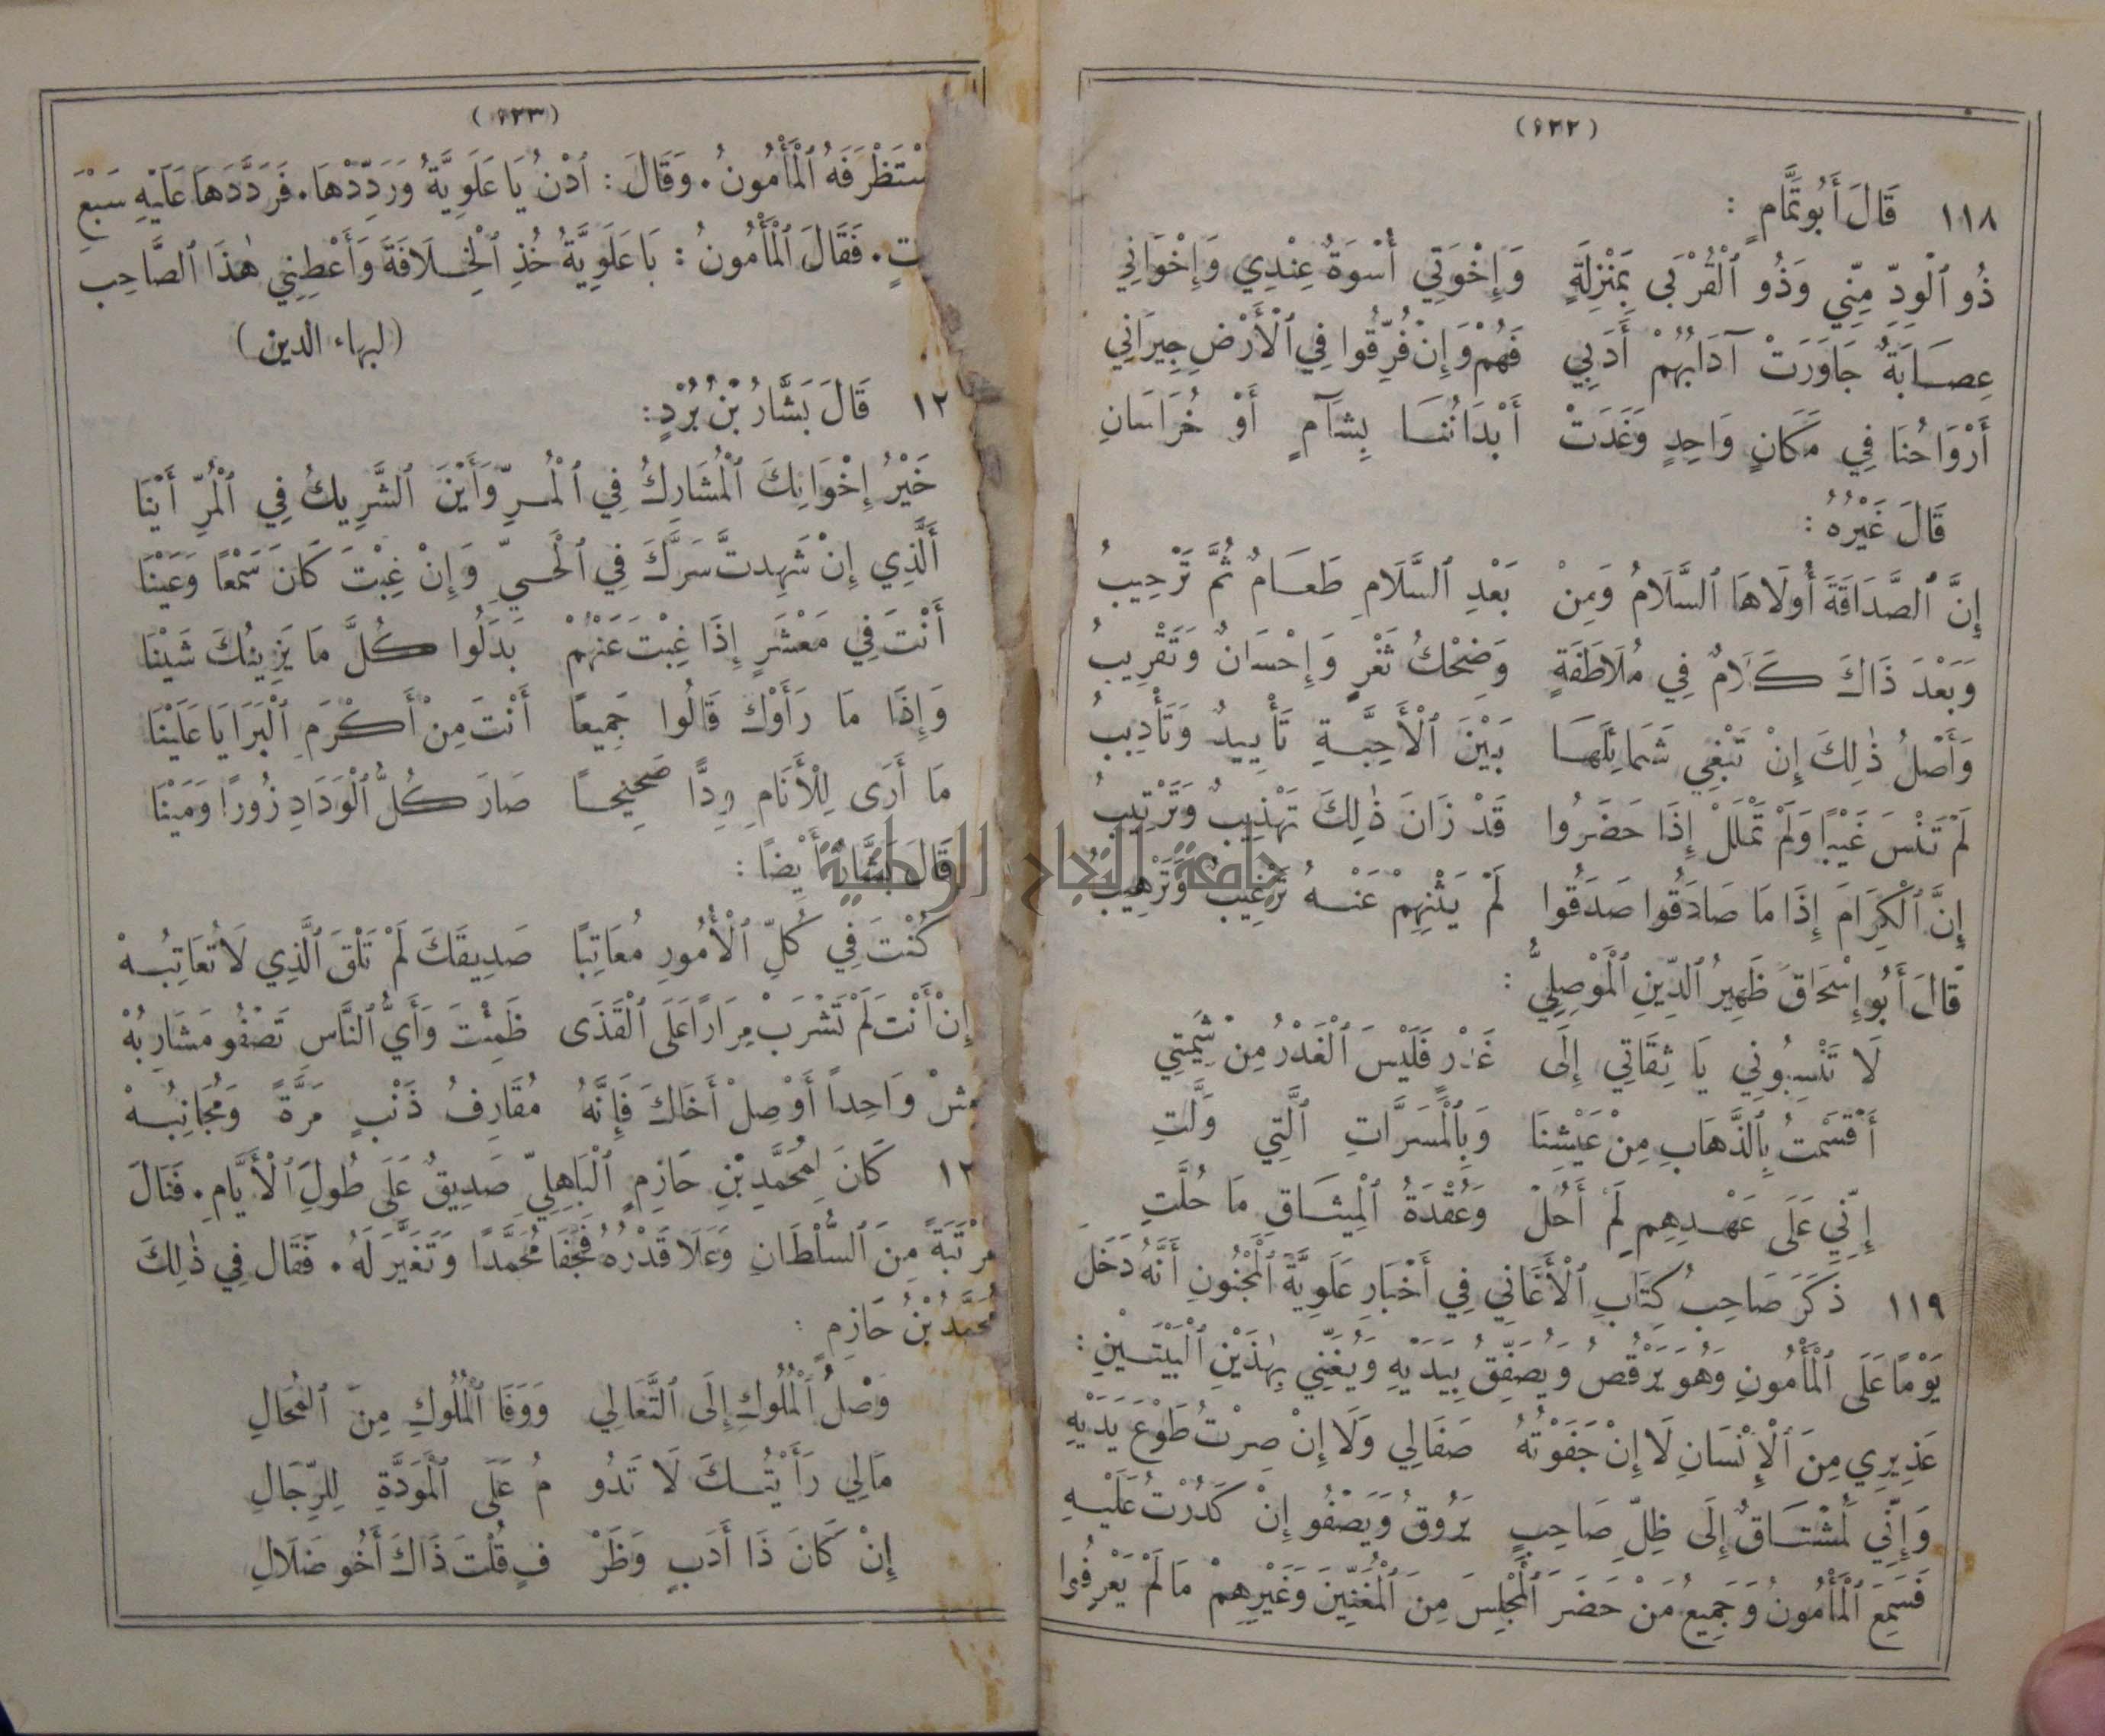 (١٢٢)
١١٨ قَالَ أَبُو تَمَّامٍ :
ذُو ٱلْوِدِّ مِنِّي وَذُو ٱلْقُرْبَى بِمَنْزِلَةٍ وَإِخْوَتِي أُسْوَةٌ عِنْدِي وَإِخْوَانِي
عِصَابَةٌ جَاوَرَتْ آدَابُهُمْ أَدَبِي فَهُمْ وَإِنْ فُرِّقُوا فِي ٱلْأَرْضِ جِيرَانِي
أَرْوَاحُنَا فِي مَكَانٍ وَاحِدٍ وَغَدَتْ أَبْدَانُنَا بِشَآمٍ أَوْ خُرَاسَانِ
قَالَ غَيْرُهُ :
إِنَّ ٱلصَّدَاقَةَ أُولَاهَا ٱلسَّلَامُ وَمِنْ بَعْدِ ٱلسَّلَامِ طَعَامٌ ثُمَّ تَرْحِيبُ
وَبَعْدَ ذَاكَ كَلَامٌ فِي مُلَاطَفَةٍ وَضِحْكُ ثَغْرٍ وَإِحْسَانٌ وَتَقْرِيبُ
وَأَصْلُ ذٰلِكَ إِنْ تَبْغِي شَمَائِلَهَا بَيْنَ ٱلْأَحِبَّةِ تَأْيِيدٌ وَتَأْدِيبُ
لَمْ تَنْسَ غَيْبًا وَلَمْ تَمْلَلْ إِذَا حَضَرُوا قَدْ زَانَ ذٰلِكَ تَهْذِيبٌ وَتَرْتِيبُ
إِنَّ ٱلْكِرَامَ إِذَا مَا صَادَقُوا صَدَقُوا لَمْ يَثْنِهِمْ عَنْهُ تَرْغِيبٌ وَتَرْهِيبُ
قَالَ أَبُو إِسْحَاقَ ظَهِيرُ ٱلدِّينِ ٱلْمَوْصِلِيُّ :
لَا تَنْسِبُونِي يَا ثِقَاتِي إِلَى غَدْرٍ فَلَيْسَ ٱلْغَدْرُ مِنْ شِيمَتِي
أَقْسَمْتُ بِٱلذَّهَابِ مِنْ عَيْشِنَا وَبِٱلْمَسَرَّاتِ ٱلَّتِي وَلَّتِ
إِنِّي عَلَى عَهْدِهِمِ لَمْ أَحُلْ وَعُقْدَةُ ٱلْمِيثَاقِ مَا حُلَّتِ
١١٩ ذَكَرَ صَاحِبُ كِتَابِ ٱلْأَغَانِي فِي أَخْبَارِ عَلَوِيَّةَ ٱلْمَجْنُونِ أَنَّهُ دَخَلَ
يَوْمًا عَلَى ٱلْمَأْمُونِ وَهُوَ يَرْقُصُ وَيُصَفِّقُ بِيَدَيْهِ وَيُغَنِّي بِهٰذَيْنِ ٱلْبَيْتَيْنِ :
عَذِيرِي مِنَ ٱلْإِنْسَانِ لَا إِنْ جَفَوْتُهُ صَفَا لِي وَلَا إِنْ صِرْتُ طَوْعَ يَدَيْهِ
وَإِنِّي لَمُشْتَاقٌ إِلَى ظِلِّ صَاحِبٍ يَرُوقُ وَيَصْفُو إِنْ كَدُرْتُ عَلَيْهِ
فَسَمِعَ ٱلْمَأْمُونُ وَجَمِيعُ مَنْ حَضَرَ ٱلْمَجْلِسَ مِنَ ٱلْمُغَنِّينَ وَغَيْرِهِمْ مَا لَمْ يَعْرِفُوا
(١٢٣)
سْتَظْرَفَهُ ٱلْمَأْمُونُ . وَقَالَ : ٱدْنُ يَا عَلَوِيَّةُ وَرَدِّدْهَا . فَرَدَّدَهَا عَلَيْهِ سَبْعَ
تٍ . فَقَالَ ٱلْمَأْمُونُ : يَا عَلَوِيَّةُ خُذِ ٱلْخِلَافَةَ وَأَعْطِنِي هٰذَا ٱلصَّاحِبِ
(لبهاء الدين)
١٢ قَالَ بَشَّارُ بْنُ بُرْدٍ :
خَيْرُ إِخْوَانِكَ ٱلْمُشَارِكُ فِي ٱلْمُرِّ وَأَيْنَ ٱلشَّرِيكُ فِي ٱلْمُرِّ أَيْنَا
أَلَّذِي إِنْ شَهِدتَّ سَرَّكَ فِي ٱلْحَيِّ وَإِنْ غِبْتَ كَانَ سَمْعًا وَعَيْنَا
أَنْتَ فِي مَعْشَرٍ إِذَا غِبْتَ عَنْهُمْ بَدَلُوا كُلَّ مَا يَزِينُكَ شَيْنَا
وَإِذَا مَا رَأَوْكَ قَالُوا جَمِيعًا أَنْتَ مِنْ أَكْرَمِ ٱلْبَرَايَا عَلَيْنَا
مَا أَرَى لِلْأَنَامِ وِدًّا صَحِيحًا صَارَ كُلُّ ٱلْوِدَادِ زُورًا وَمَيْنَا
قَالَ بَشَّارٌ أَيْضًا :
كُنْتَ فِي كُلِّ ٱلْأُمُورِ مُعَاتِبًا صَدِيقَكَ لَمْ تَلْقَ ٱلَّذِي لَا تُعَاتِبُهْ
إِنْ أَنْتَ لَمْ تَشْرَبْ مِرَارًا عَلَى ٱلْقَذَى ظَمِئْتَ وَأَيُّ ٱلنَّاسِ تَصْفُو مَشَارِبُهْ
عِشْ وَاحِداً أَوْ صِلْ أَخَاكَ فَإِنَّهُ مُقَارِفُ ذَنْبٍ مَرَّةً وَمُجَانِبُهْ
١٢ كَانَ لِمُحَمَّدِ بْنِ حَازِمٍ ٱلْبَاهِلِيِّ صَدِيقٌ عَلَى طُولِ ٱلْأَيَّامِ . فَنَالَ
مَرْتَبَةً مِنَ ٱلسُّلْطَانِ وَعَلَا قَدْرُهُ فَجَفَا مُحَمَّدًا وَتَغَيَّرَ لَهُ . فَقَالَ فِي ذٰلِكَ
مُحَمَّدُ بْنُ حَازِمٍ :
وَصْلُ ٱلْمُلُوكِ إِلَى ٱلتَّعَالِي وَوَفَا ٱلْمُلُوكِ مِنَ ٱلْمُحَالِ
مَالِي رَأَيْتُكَ لَا تَدُو مُ عَلَى ٱلْمَوَدَّةِ لِلرِّجَالِ
إِنْ كَانَ ذَا أَدَبٍ وَظَرْ فٍ قُلْتَ ذَاكَ أَخُو ضَلَالِ
جامعة النجاح الوطنية